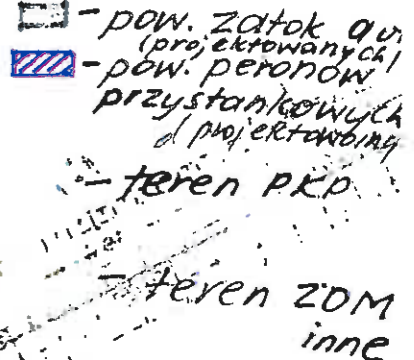 - pow. zatok au
(projektowanych)
- pow. peronów
przystankowych
- teren PKP
- teren ZDM
inne